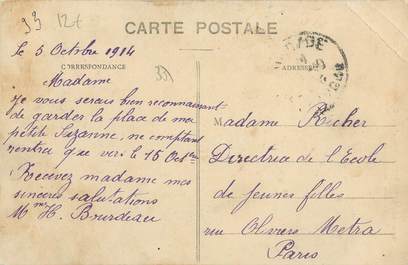 33 127
CARTE POSTALE
le 5 Octobre 1914
CORRESPONDANCE
ADRESSE
33
Madame
Je vous serais bien reconnaissant
de garder la place de ma
petite Suzanne, ne comptant
rentrer que vers le 15 Oct
Recevez madame mes
sincères salutations
Mme H. Bourdeau
Madame Richer
Directrice de l'Ecole
de jeunes filles
rue Oliviers Metra
Paris